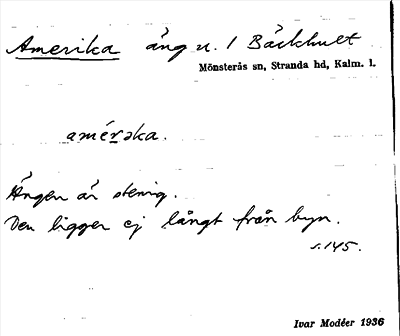 Amerika äng n. 1 Bäckhult
Mönsterås sn, Stranda hd, Kalm. l.
amérəka.
Ängen är stenig.
Den ligger ej långt från byn.
s. 145.
Ivar Modéer 1936